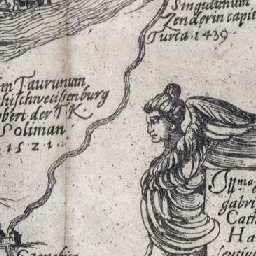 Singidunum
Zendorin capit
Turca 1439
m Taurunum
chischweissenburg
bert der TK
Soliman
1521
gabri
Cath
Ha